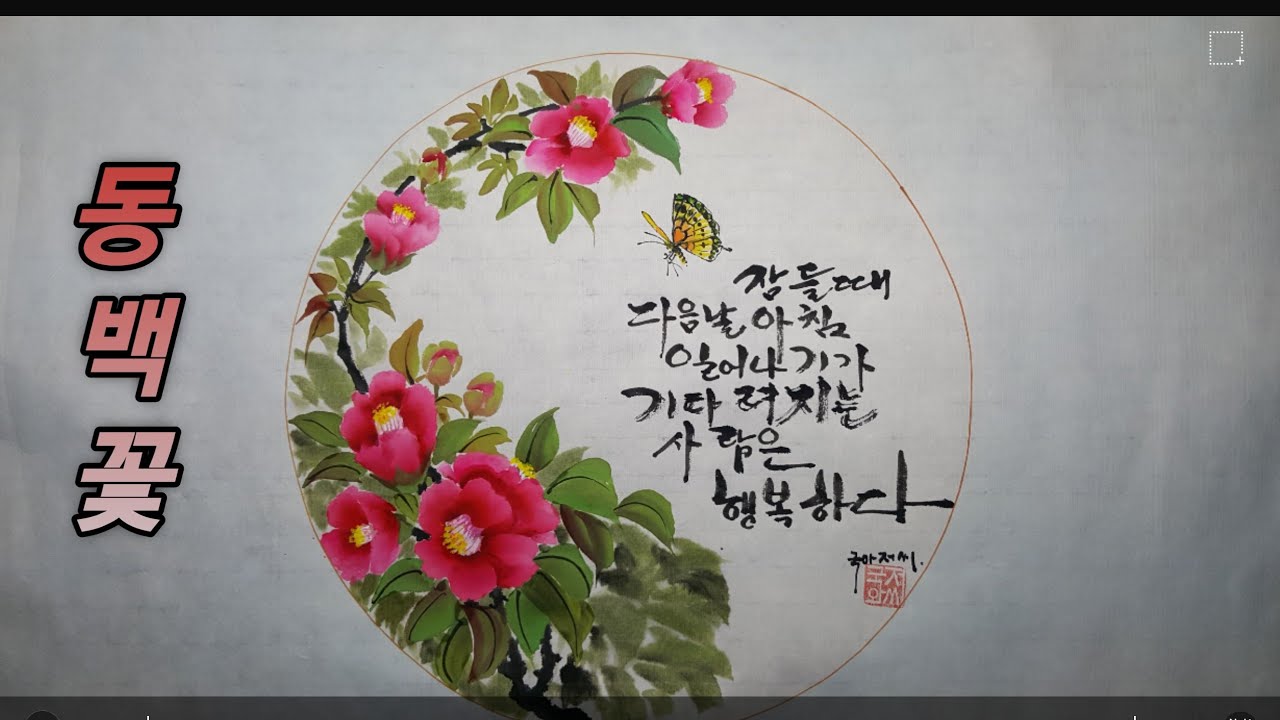 동백꽃
잠들때
다음날 아침
일어나 기가
기다려지는
사람은
행복하다